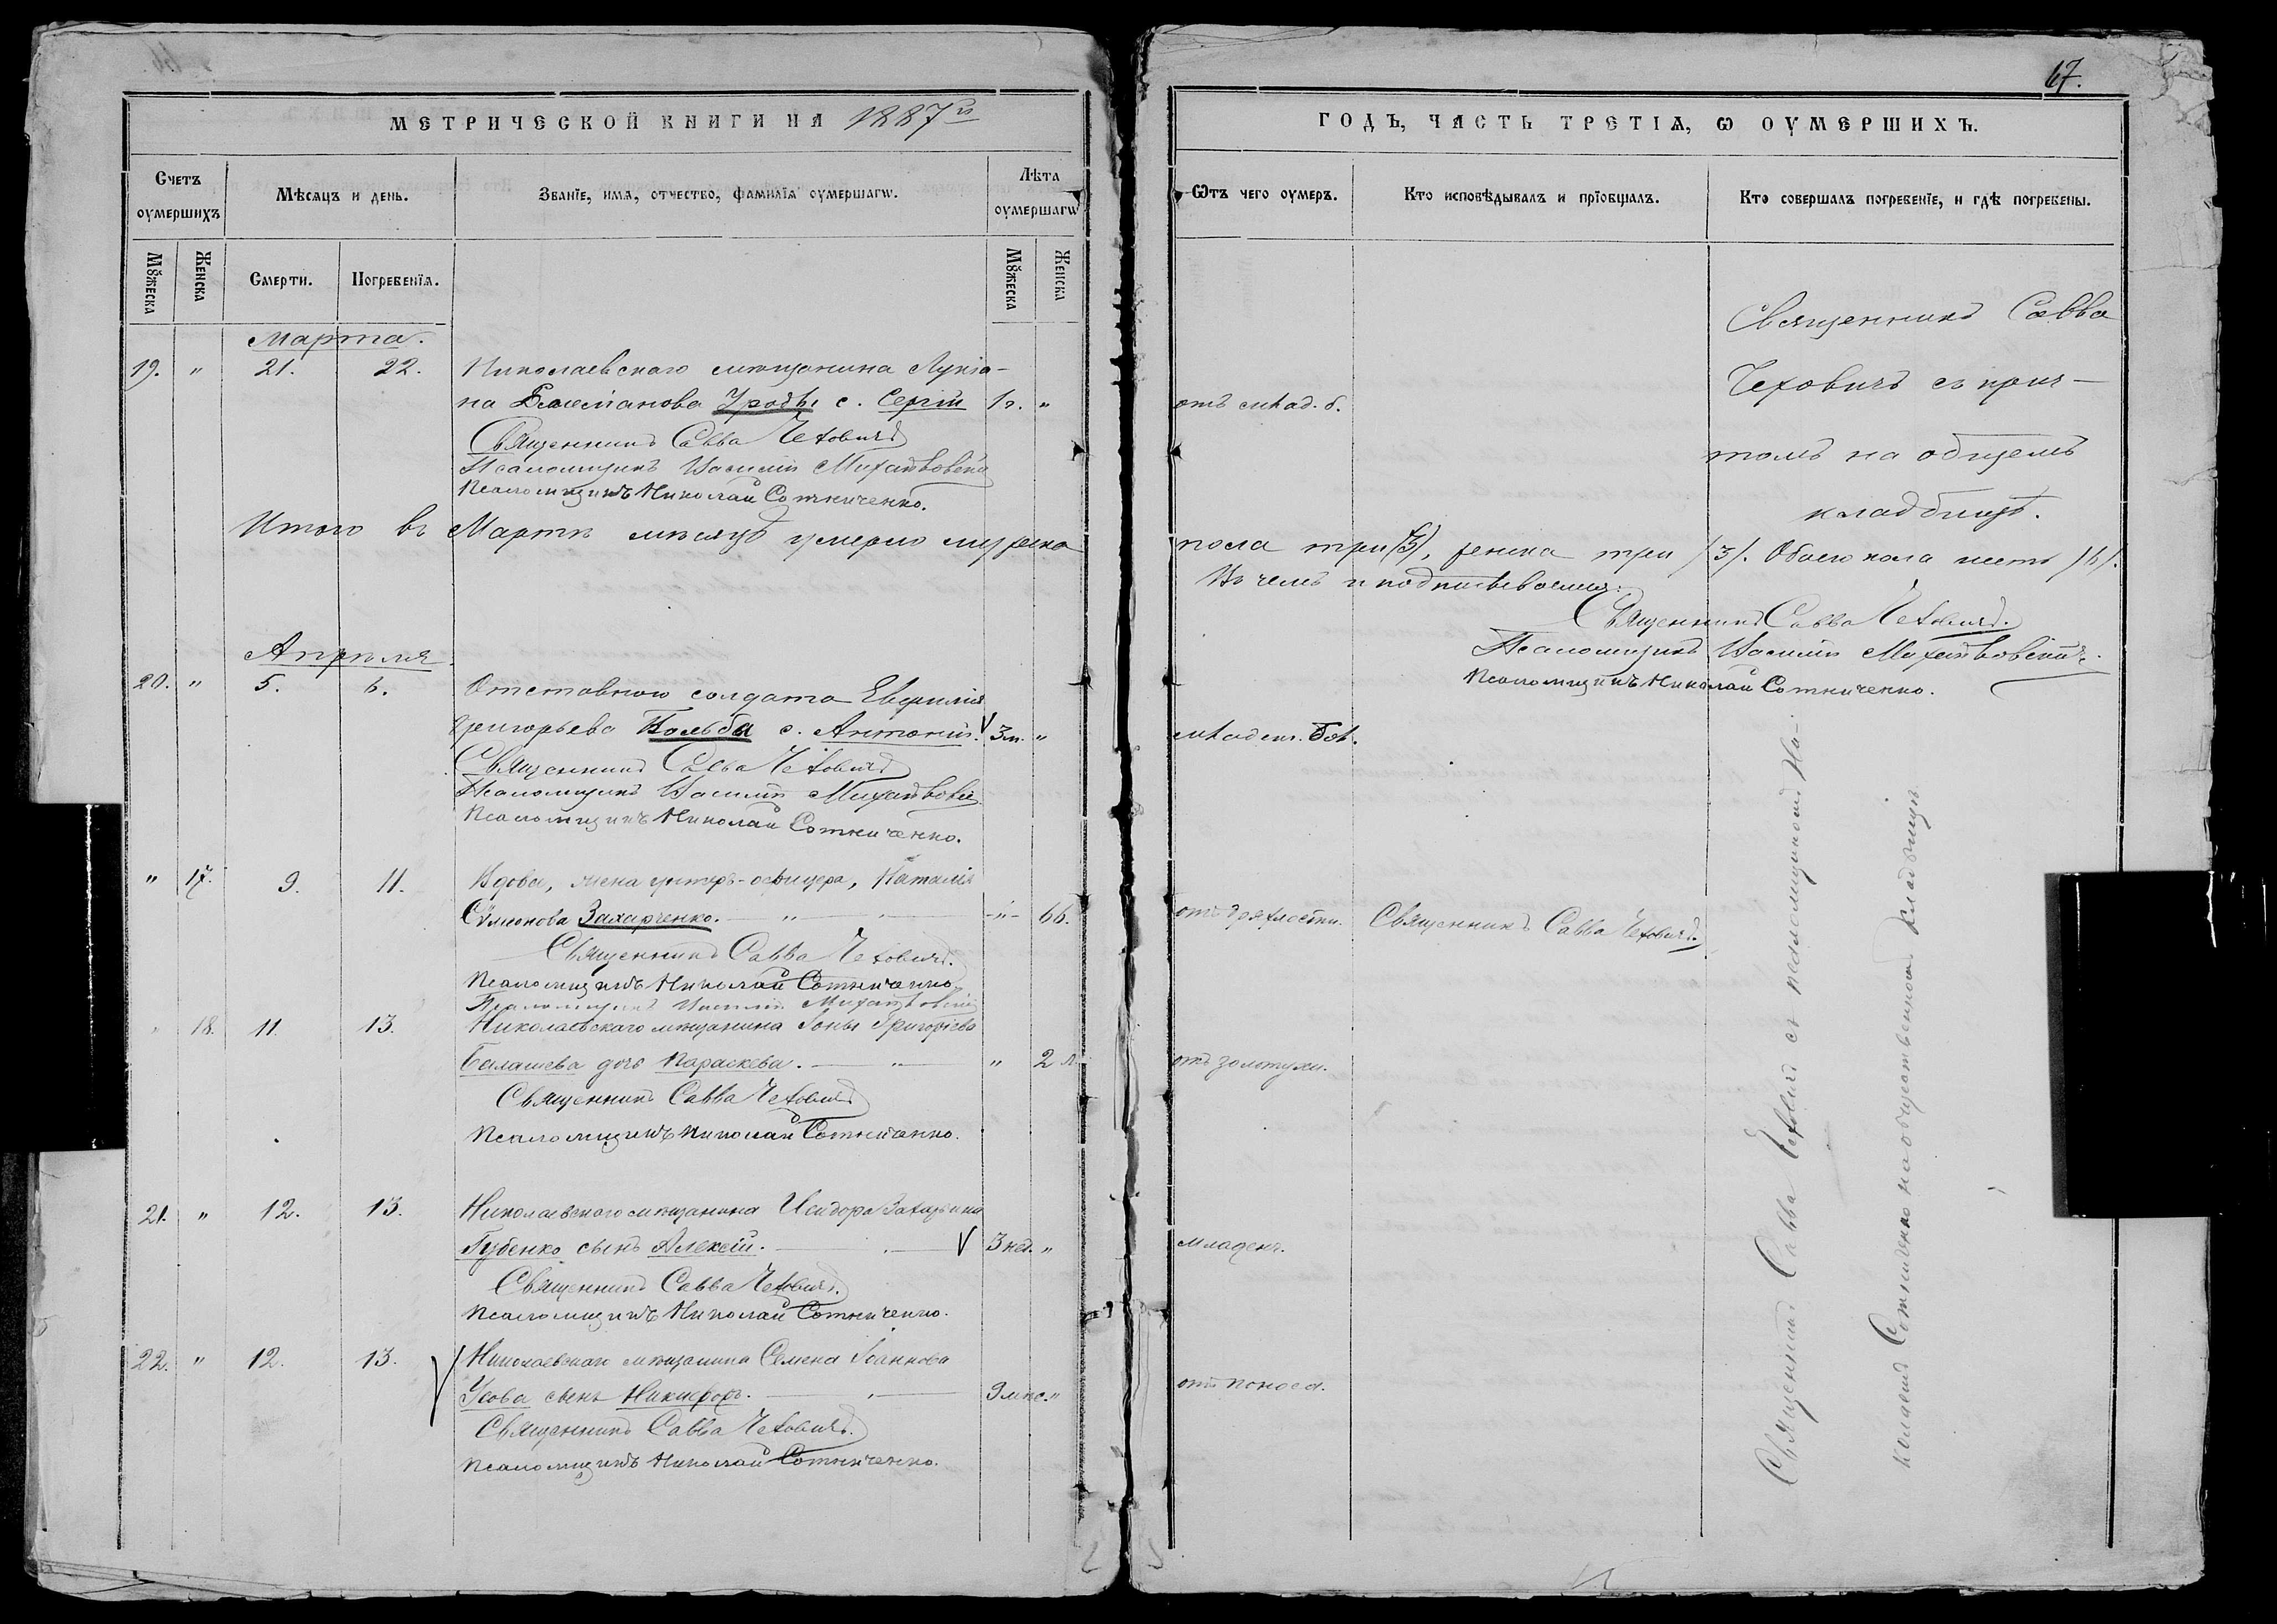 67.
МЕТРИЧЕСКОЙ КНИГИ НА 1887й
ГОДЪ, ЧАСТЬ ТРЕТІѦ, Ѡ ОУМЕРШИХЪ.
Счетъ оумершихъ
Мѣсяцъ и день.
Званїе, имя, отчество, фамилїя оумершагѡ.
Лѣта оумершагѡ
Ѿтъ чего оумеръ.
Кто исповѣдывалъ и прїобщалъ.
Кто совершалъ погребенїе, и гдѣ погребены.
Мꙋжеска
Женска
Смерти.
Погребенїя.
Мꙋжеска
Женска
Марта.
19. " 21. 22. Николаевскаго мѣщанина Лукіа-
на Уроды с. Сергій 1 г. " отъ млад. б.
Священникъ Савва Чеховичъ
Псаломщикъ Василій
Псаломщикъ Николай Сотниченко.
Священникъ Савва
Чеховичъ съ прич-
томъ на общемъ
кладбищѣ.
Итого въ Мартѣ мѣсяцѣ умерло мужска пола три /3/, женска три /3/. Обоего пола шесть /6/.
Въ чемъ и подписываемся:
Священникъ Савва Чеховичъ.
Псаломщикъ Василій
Псаломщикъ Николай Сотниченко.
Апрѣля.
20. " 5. 6. Отставного солдата Евфимія
Григорьева с. Антоній. V 3 м. " младен. бол.
Священникъ Савва Чеховичъ
Псаломщикъ Василій
Псаломщикъ Николай Сотниченко.
" 17. 9. 11. Вдова, жена унтеръ-офицера, Наталія
Сѵмеонова Захарченко. — " — -"- 66. отъ дряхлости. Священникъ Савва Чеховичъ.
Священникъ Савва Чеховичъ.
Псаломщикъ Николай Сотниченко
Псаломщикъ Василій
" 18. 11. 13. Николаевскаго мѣщанина Іоны Григоріева
Балашева дочь Параскева. — " — " 2 л. отъ золотухи.
Священникъ Савва Чеховичъ
Псаломщикъ Николай Сотниченко.
21. " 12. 13. Николаевскаго мѣщанина Исидора
Губенко сынъ Алексій. — V 3 нед. " младен.
Священникъ Савва Чеховичъ.
Псаломщикъ Николай Сотниченко.
22. " 12. 13. V Николаевскаго мѣщанина Семена Іоаннова
Усова сынъ Никифоръ. — 9 мѣс. " отъ поноса.
Священникъ Савва Чеховичъ.
Псаломщикъ Николай Сотниченко.
Священникъ Савва Чеховичъ съ псаломщикомъ Ни-
колаемъ Сотниченко на общественномъ кладбищѣ